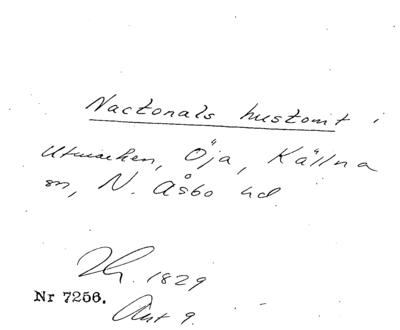 Nactonals hustomt i
Utmarken, Öja, Källna
sn, N. Åsbo hd
1829
Nr 7256.
Ant 9.